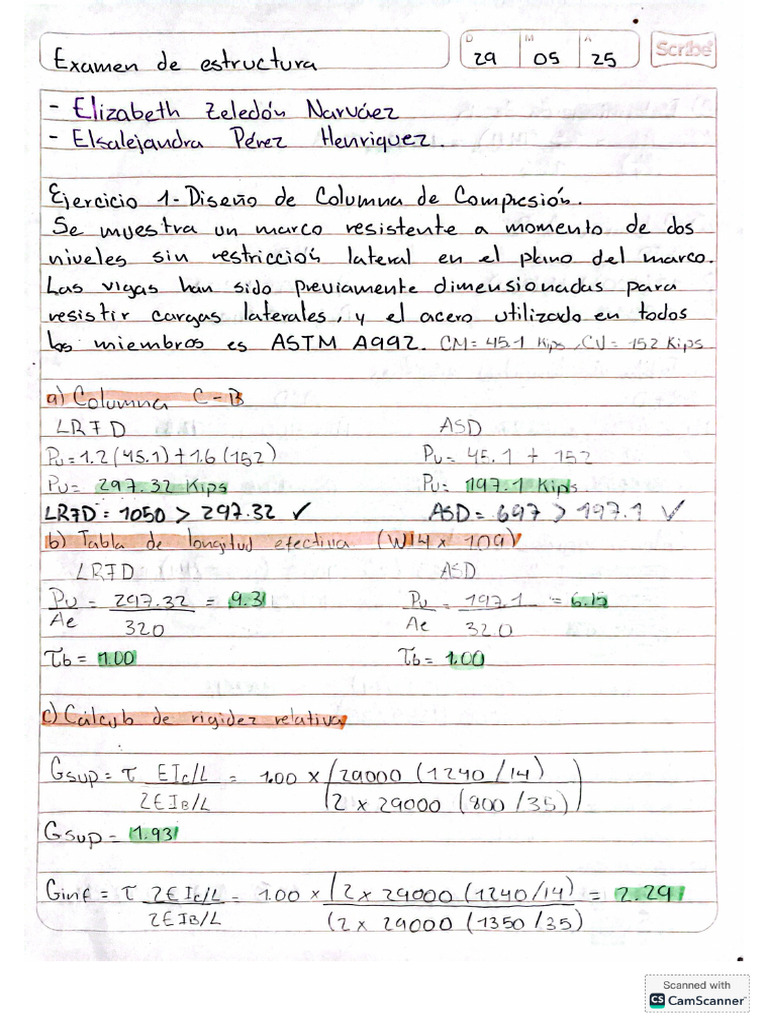 Examen de estructura
D M A
29 05 25
Scribe
- Elizabeth Zeledón Narváez
- Elsalejandra Pérez Henriquez.
Ejercicio 1- Diseño de Columna de Compresión.
Se muestra un marco resistente a momento de dos
niveles sin restricción lateral en el plano del marco.
Las vigas han sido previamente dimensionadas para
resistir cargas laterales, y el acero utilizado en todos
los miembros es ASTM A992. CM= 45.1 Kips, CV= 152 Kips
a) Columna C-B
LRFD ASD
Pu= 1.2(45.1)+1.6(152) Pu= 45.1 + 152
Pu= 297.32 Kips Pu= 197.1 Kips.
LRFD = 1050 > 297.32 ✓ ASD= 697 > 197.1 ✓
b) Tabla de longitud efectiva (W14 x 109)
LRFD ASD
Pu/Ae = 297.32/320 = 9.31 Pu/Ae = 197.1/320 = 6.15
τb = 1.00 τb = 1.00
c) Cálculo de rigidez relativa
Gsup = τ EIc/L / 2EIB/L = 1.00 x (29000 (1240/14) / 2 x 29000 (800/35))
Gsup = 1.93
Ginf = τ 2EIc/L / 2EIB/L = 1.00 x (2 x 29000 (1240/14) / (2 x 29000 (1350/35) = 2.29
Scanned with
CS CamScanner